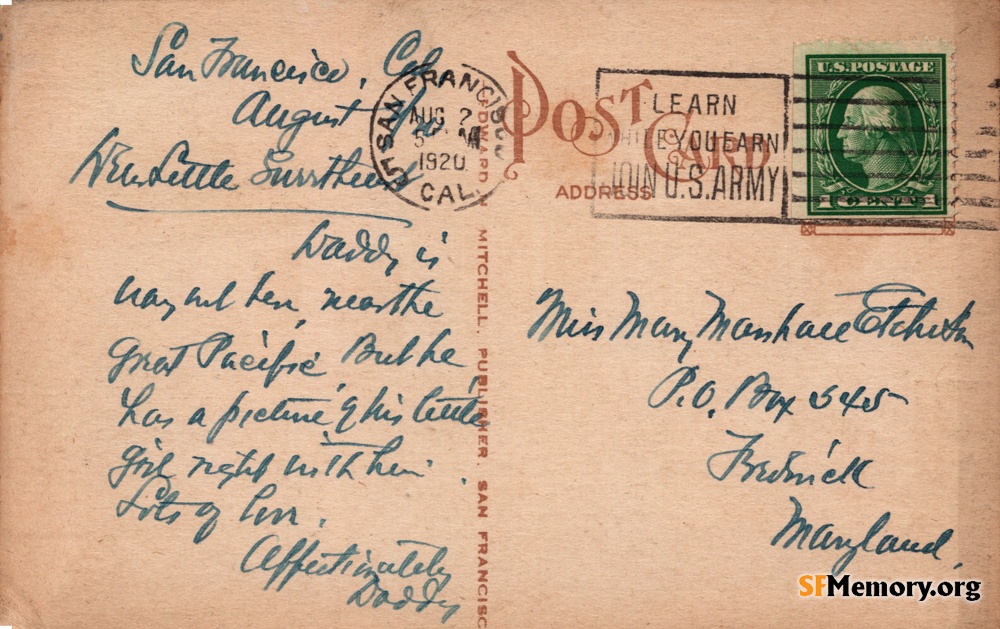 San Francisco, Cal
August
Dear Little Sweetheart
Daddy is
way out here, near the
Great Pacific, But he
has a picture of his little
girl right with him.
Lots of love.
Affectionately
Daddy
SAN FRANCISCO
AUG 2
5 M
1920
CAL.
EDWARD H. MITCHELL, PUBLISHER, SAN FRANCISC
POST CARD
ADDRESS
LEARN
WHILE YOU EARN
JOIN U.S. ARMY
U.S. POSTAGE
1 CENT 1
Miss Mary Marshall Etchison
P.O. Box 345
Frederick
Maryland.
SFMemory.org